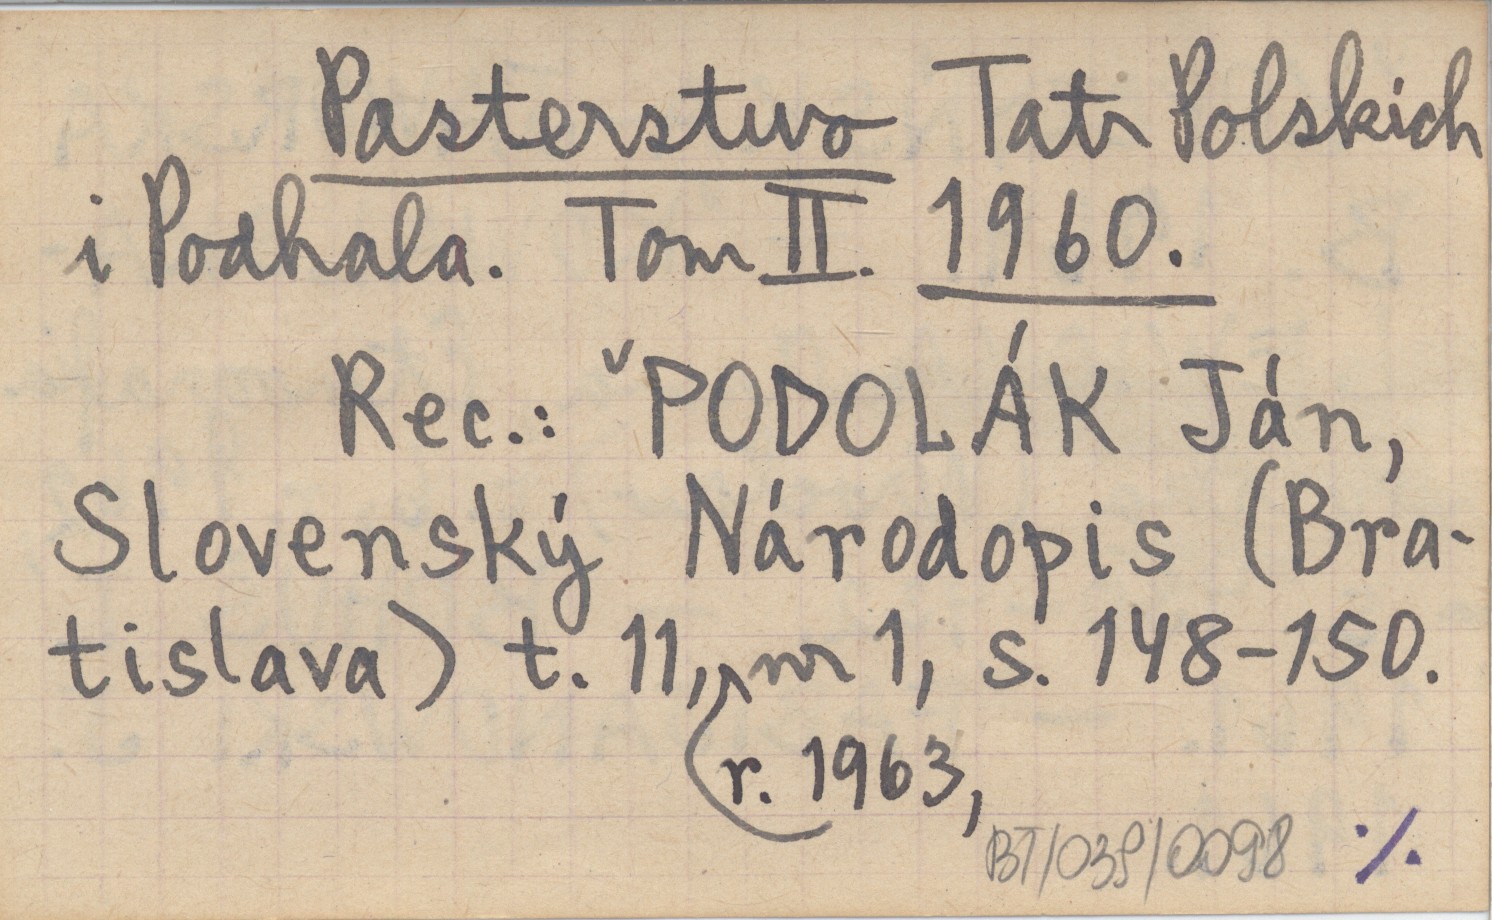 Pasterstwo Tatr Polskich
i Podhala. Tom II. 1960.
Rec.: ˇPODOLÁK Ján,
Slovenský Národopis (Bra-
tislava) t. 11, nr 1, s. 148-150.
r. 1963,
BT/039/0098 ./.